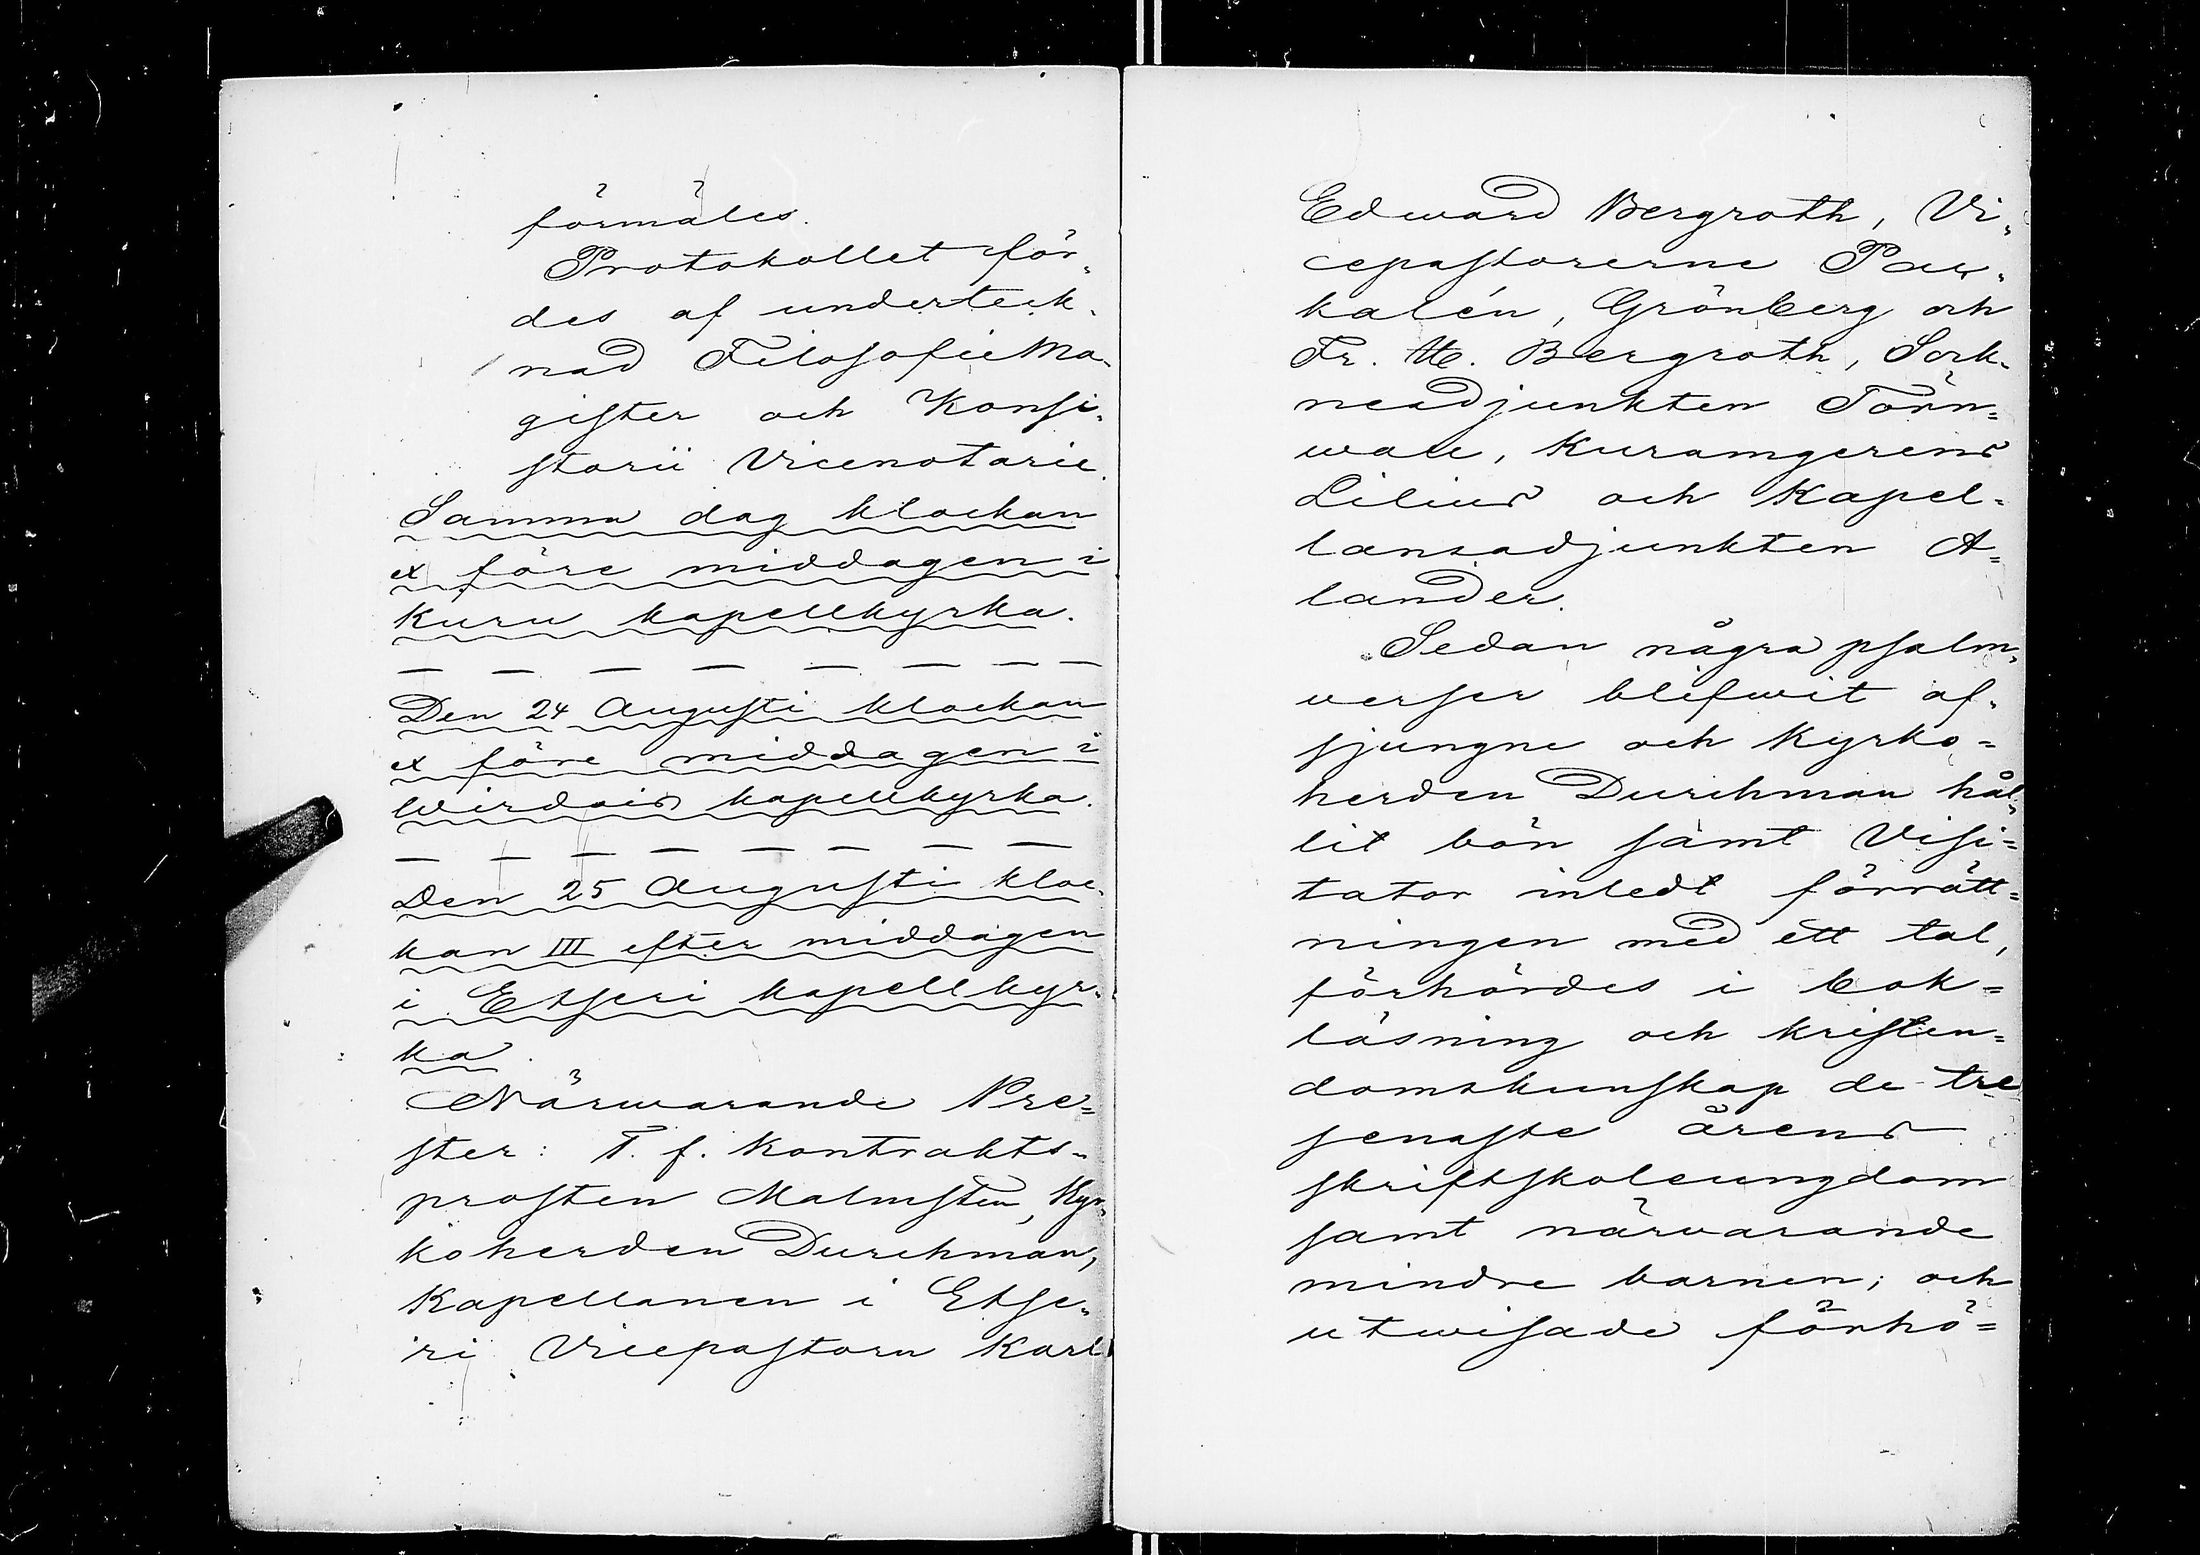 förmäles.
Protokollet för-
des af underteck-
nad Filosofie Ma-
gister och Konsi-
storii Vicenotarie.
Samma dag klockan
ex före middagen i
Kuru kapellkyrka.
Den 24 Augusti klockan
ex före middagen i
Wirdois kapellkyrka.
Den 25 Augusti kloc-
kan III efter middagen
i Etseri kapellkyr-
ka.
Närwarande Pre=
ster: T. f. Kontrakts-
prosten Malmsten, Kyr-
koherden Durchman,
Kapellanen i Etse-
ri Vicepastorn Karl
Edward Bergroth, Vi-
cepastorerne Pau-
kalén, Grönberg och
Fr. U. Bergroth, Sock-
neadjunkten Törn=
wall, Kuramgerens
Lilius och Kapel=
lansadjunkten A=
lander.
Sedan några psalm-
verser blifwit af-
sjungne och Kyrko=
herden Durchman hål-
lit bön samt Visi=
tator inledt förrätt=
ningen med ett tal,
förhördes i bok=
läsning och kristen=
domskunskap de tre
senaste årens
skriftskoleungdom
samt närvarande
mindre barnen; och
utwisade förhö=